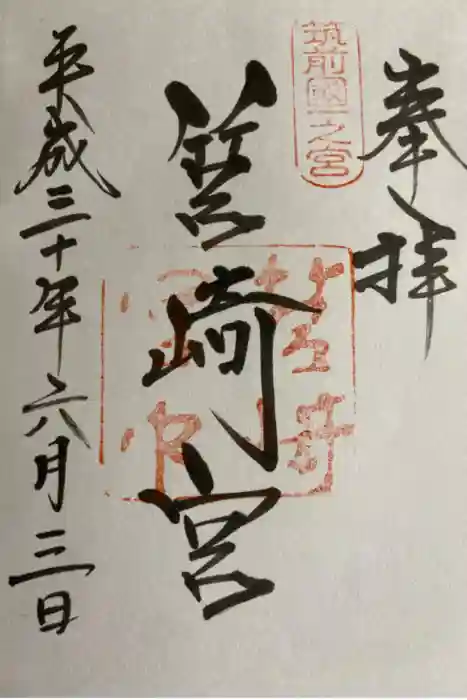 奉拝
筑前國一之宮
筥崎宮
平成三十年六月三日